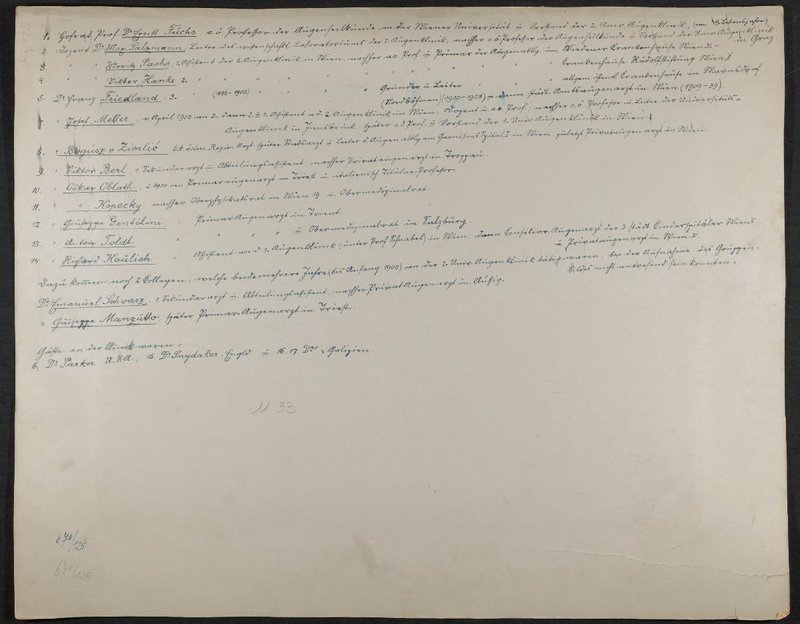 1. Hofrat Prof. Dr. Ernst Fuchs o.ö. Professor der Augenheilkunde an der Wiener Universität u. Vorstand der 2. Univ. Augenklinik, (im 49. Lebensjahre)
2. Dozent Dr. Max Salzmann, Leiter des Laboratoriums der 2. Augenklinik, nachher o.ö. Professor der Augenheilkunde u. Vorstand der Univ. Augenklinik in Graz.
3. " " Moritz Sachs, 1. Assistent der 2. Augenklinik in Wien, nachher ao. Prof. u. Primar der Augenabtlg. im Wiedener Krankenhause Wien
4. " " Viktor Hanke 2. " " " " " " Krankenhause Rudolfstiftung Wien
5. Dr. Franz Friedland, 3. " (1896-1900) " Gründer u. Leiter " allgem. öffentl. Krankenhause in Warnsdorf
(Nordböhmen) (1900-1908) u. städt. Amtsaugenarzt in Wien (1909-39)
" Josef Meller, April 1900 an 3. dann 2. & 1. Assistent a.d. 2. Augenklinik in Wien, Dozent u. ao. Prof., nachher o.ö. Professor u. Leiter der Universitäts-
Augenklinik in Innsbruck, später o.ö. Prof. u. Vorstand der 1. Univ. Augenklinik in Wien
8. " Bogusz v. später Stabsarzt u. Leiter d. Augenabtlg. im Garnisonsspital 1 in Wien, zuletzt Privataugenarzt in Wien
9. " Viktor Berl, 1. Sekundararzt u. Abteilungsassistent nachher Privataugenarzt in Troppau.
10. " Oskar Oblath, Primaraugenarzt in Triest u. italienisch. Titular-Professor
11. " " Kopecky, nachher Oberphysikatsrat in Wien 13 u. Obermedizinalrat
12. " Giuseppe Gentilini " Primar Augenarzt in Trient
13. " Anton Toldt " " " " u. Obermedizinalrat in Salzburg
14. " Richard Hawlich " Assistent and. 1. Augenklinik (unter Prof. Schnabel) in Wien, dann Consiliar Augenarzt der 3 städt. Kinderspitäler Wiens
u. Privataugenarzt in Wien
Dazu kamen noch 2 Collegen, welche beide mehrere Jahre (bis Anfang 1900) an der 2. Univ. Augenklinik tätig waren, bei der Aufnahme des Gruppen-
bildes nicht anwesend sein konnten:
Dr. Emanuel Schwarz, 1. Sekundararzt u. Abteilungsassistent, nachher Privat Augenarzt in Aussig.
" Giuseppe Manzutto, später Primar-Augenarzt in Triest.
Gäste an der Klinik waren:
6, Dr. Parker U.S.A., 15. Dr. Snydaker, u. 16, 17 Dres. Galizien.
M 33
640/125
640/125